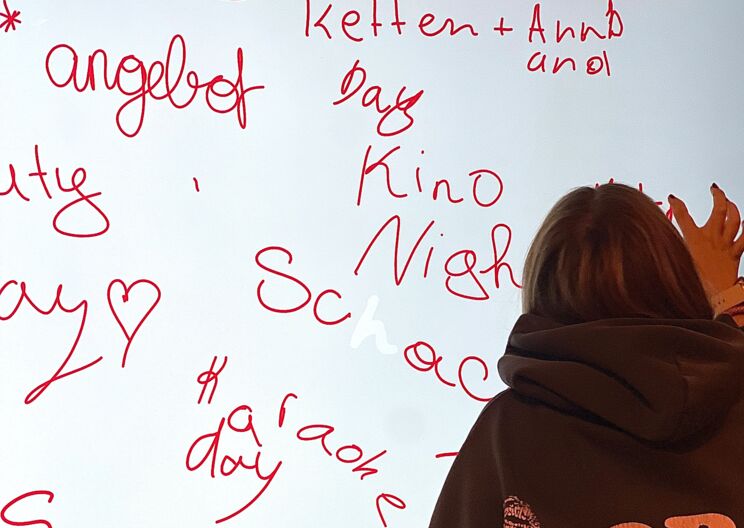 *
Ketten + Armb
and
angebot
Day
uty
Kino
Nigh
ay ♡
Schac
Karaoke
day
S